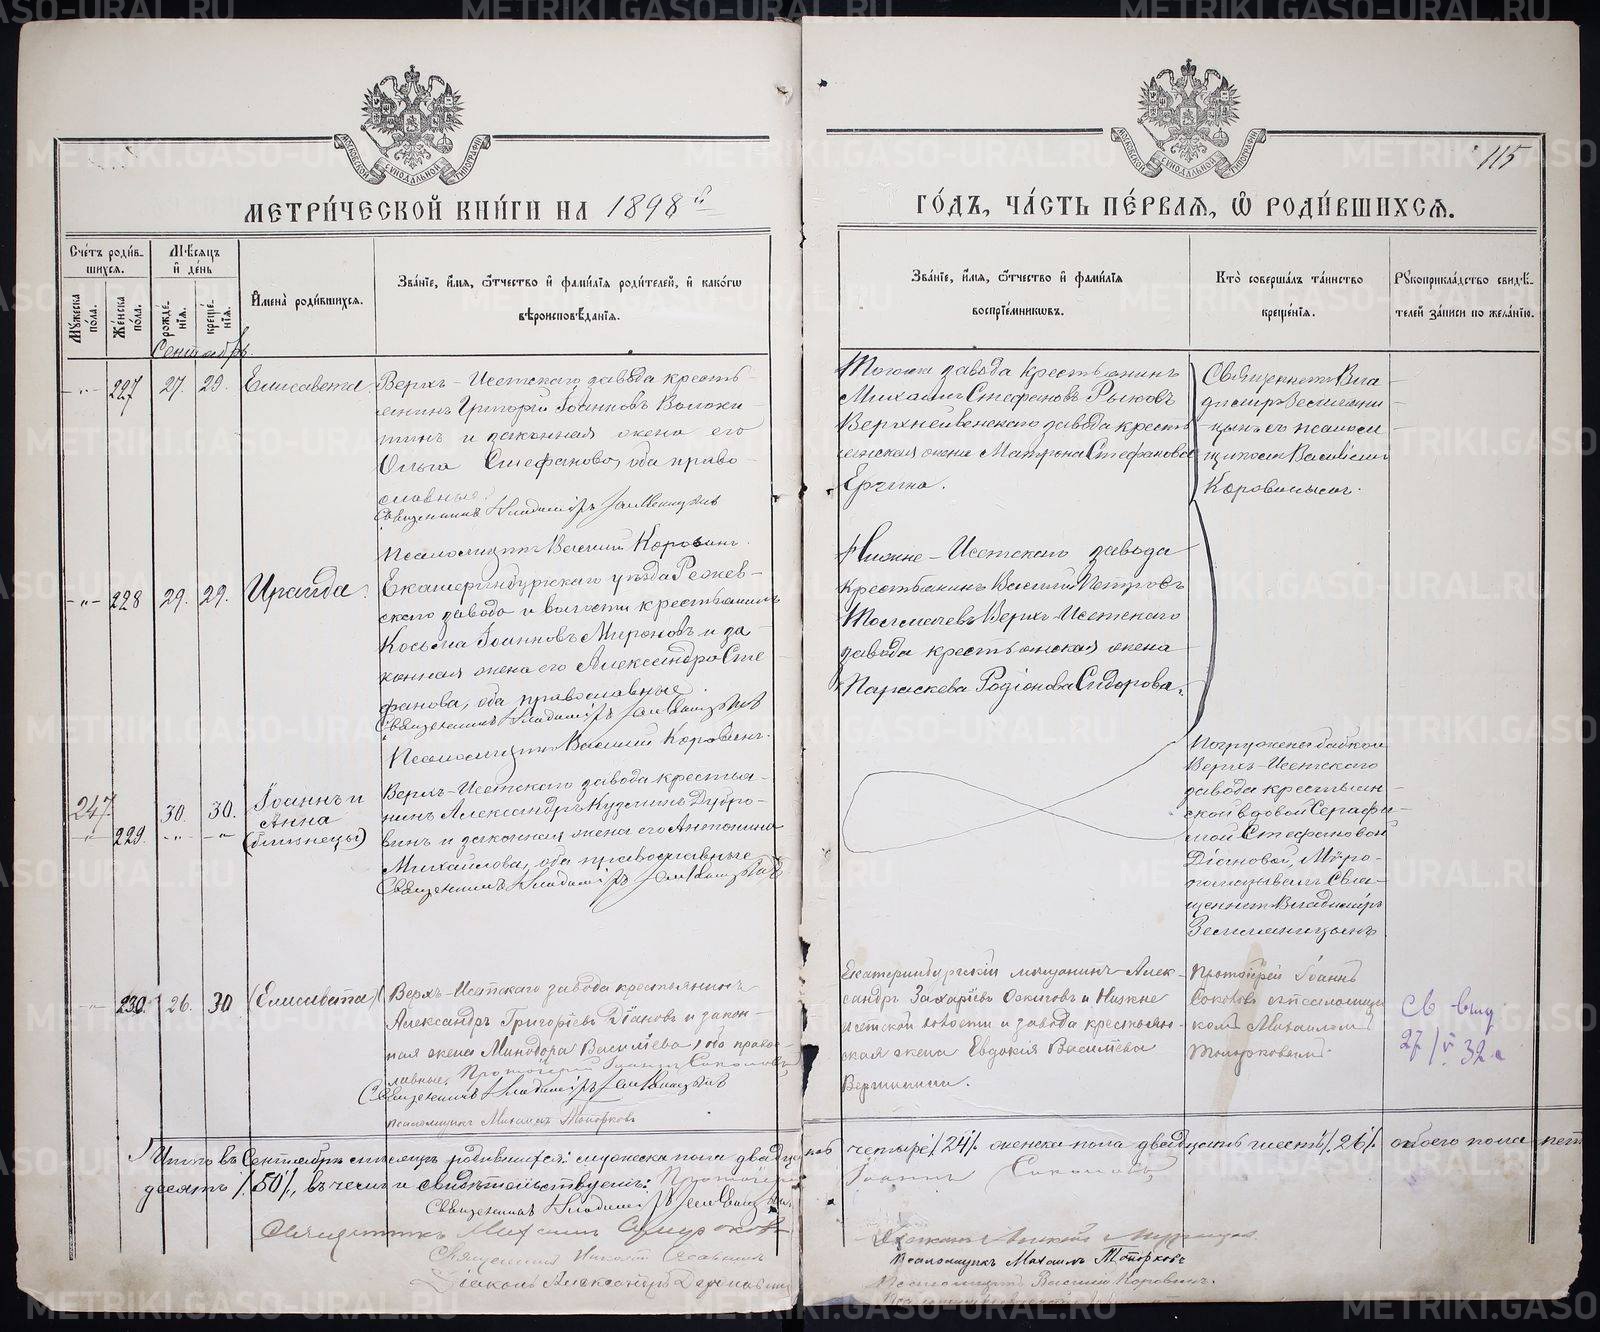 METRIKI.GASO-URAL.RU
115
МЕТРИ́ЧЕСКОЙ КНИ́ГИ НА 1898 й
ГО́ДЪ, ЧА́СТЬ ПЕ́РВАЯ, Ѡ РОДИ́ВШИХСЯ.
МОСКОВСКОЙ СѴНОДАЛЬНОЙ ТИПОГРАФІИ
МОСКОВСКОЙ СѴНОДАЛЬНОЙ ТИПОГРАФІИ
Сче́тъ роди́вшихся.
Мꙋ́жеска по́ла.
Же́нска по́ла.
Мѣ́сяцъ и҆ де́нь
рожде́нїѧ.
креще́нїѧ.
И҆мена̀ роди́вшихся.
Зва́нїе, и҆́мя, ѻ҆́тчество и҆ фами́лїѧ роди́телей, и҆ како́гѡ
вѣроисповѣ́данїѧ.
Зва́нїе, и҆́мя, ѻ҆́тчество и҆ фами́лїѧ
воспрїе́мникѡвъ.
Кто̀ соверша́лъ та́инство
креще́нїѧ.
Рꙋкоприкла́дство свидѣ́-
телей за́писи по жела́нїю.
Сентябрь.
-„- 227 27. 29. Елисавета.
Верхъ-Исетскаго завода кресть-
янинъ Григорій Іоанновъ Волоки-
тинъ и законная жена его
Ольга Стефанова, оба право-
славные.
Священникъ Владиміръ Земляницынъ
Псаломщикъ Василий Коровинъ.
Тогоже завода крестьянинъ
Михаилъ Стефановъ Рыковъ
Верхнейвенскаго завода кресть
янская жена Матрона Стефанова
Ерзина.
Священникъ Вла-
диміръ Земляни-
цынъ съ псалом
щикомъ Василіемъ
Коровинымъ.
-„- 228 29. 29. Ираида.
Екатеринбургскаго уѣзда Режев-
скаго завода и волости крестьянинъ
Косьма Іоанновъ Мироновъ и за-
конная жена его Александра Сте
фанова, оба православные.
Священникъ Владиміръ Земляницынъ
Псаломщикъ Василий Коровинъ.
Нижне-Исетскаго завода
крестьянинъ Василій Петровъ
Толмачевъ Верхъ-Исетскаго
завода крестьянская жена
Параскева Родіонова Сидорова.
247. 30. 30. Іоаннъ и
-„- 229. -„- -„- Анна
(близнецы)
Верхъ-Исетскаго завода крестья-
нинъ Александръ Кузминъ Дубро-
винъ и законная жена его Антонина
Михайлова, оба православные
Священникъ Владиміръ Земляницынъ
Погружены бабкой
Верхъ-Исетскаго
завода крестьян-
ской вдовой Серафи-
мой Стефановой
Діановой, Мѵро-
помазывалъ Свя-
щенникъ Владиміръ
Земляницынъ
-„- 230. 26. 30 (Елисавета)
Верхъ-Исетскаго завода крестьянинъ
Александръ Григоріевъ Діановъ и закон-
ная жена Минодора Василіева, оба право-
славные. Протоіерей Іоаннъ Соколовъ
Священникъ Владиміръ Земляницынъ
псаломщикъ Михаилъ Топорковъ
Екатеринбургскій мѣщанинъ Алек-
сандръ Захаріевъ и Нижне
исетской волости и завода крестьян-
ская жена Евдокія Василіева
Вершинина.
Протоіерей Іоаннъ
Соколовъ съ псаломщи
комъ Михаиломъ
Топорковымъ.
св выд
27/V 32 г
Итого въ Сентябрѣ мѣсяцѣ родившихся: мужеска пола двадцать четыре /24/. женска пола двадцать шесть /26/. обоего пола пять
десятъ /50/, въ чемъ и свидѣтельствуемъ: Протоіерей Іоаннъ Соколовъ
Священникъ Владиміръ Земляницынъ
Священникъ Михаилъ
Священникъ
Діаконъ Александръ
Діаконъ
Псаломщикъ Михаилъ Топорковъ
Псаломщикъ Василий Коровинъ.